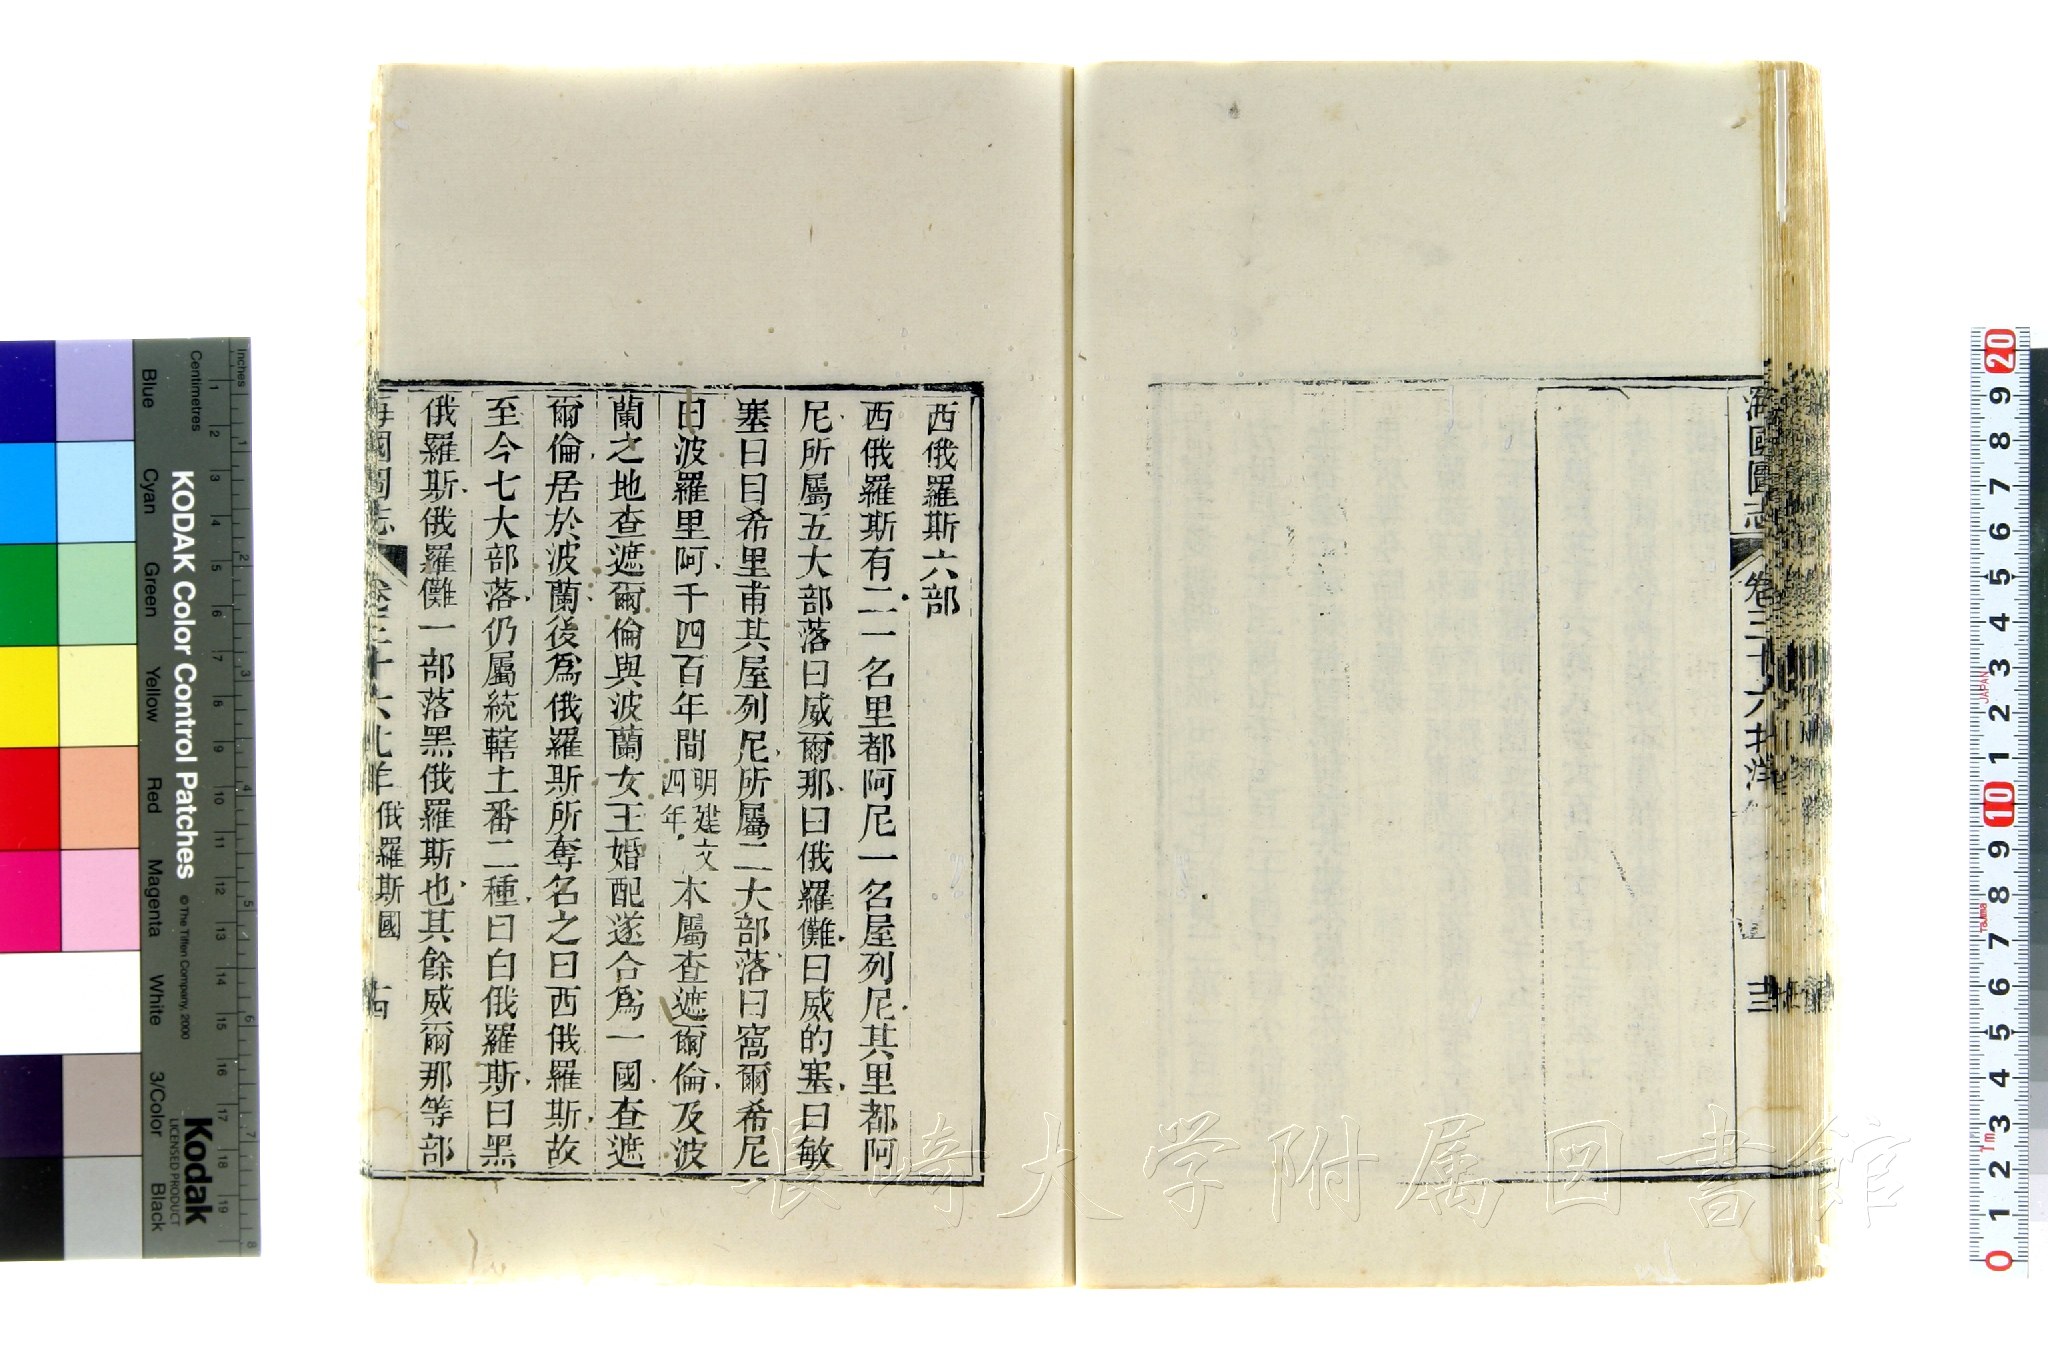 海國圖志 卷三十六 北洋
十三
西俄羅斯六部
西俄羅斯有二一名里都阿尼一名屋列尼其里都阿
尼所屬五大部落曰威爾那曰俄羅儺曰威的塞曰敏
塞曰目希里甫其屋列尼所屬二大部落曰窩爾希尼
曰波羅里阿千四百年間明建文四年本屬查遮爾倫及波
蘭之地查遮爾倫與波蘭女王婚配遂合爲一國查遮
爾倫居於波蘭後爲俄羅斯所奪名之曰西俄羅斯故
至今七大部落仍屬統轄土番二種曰白俄羅斯曰黑
俄羅斯俄羅儺一部落黑俄羅斯也其餘威爾那等部
海國圖志 卷三十六 北洋 俄羅斯國 十四
長崎大学附属図書館
KODAK Color Control Patches
©The Tiffen Company, 2000
Kodak
LICENSED PRODUCT
Inches
Centimetres
Blue
Cyan
Green
Yellow
Red
Magenta
White
3/Color
Black
1 2 3 4 5 6 7 8 9 10 11 12 13 14 15 16 17 18 19
1 2 3 4 5 6 7 8
20 9 8 7 6 5 4 3 2 1 10 9 8 7 6 5 4 3 2 1 0
JAPAN